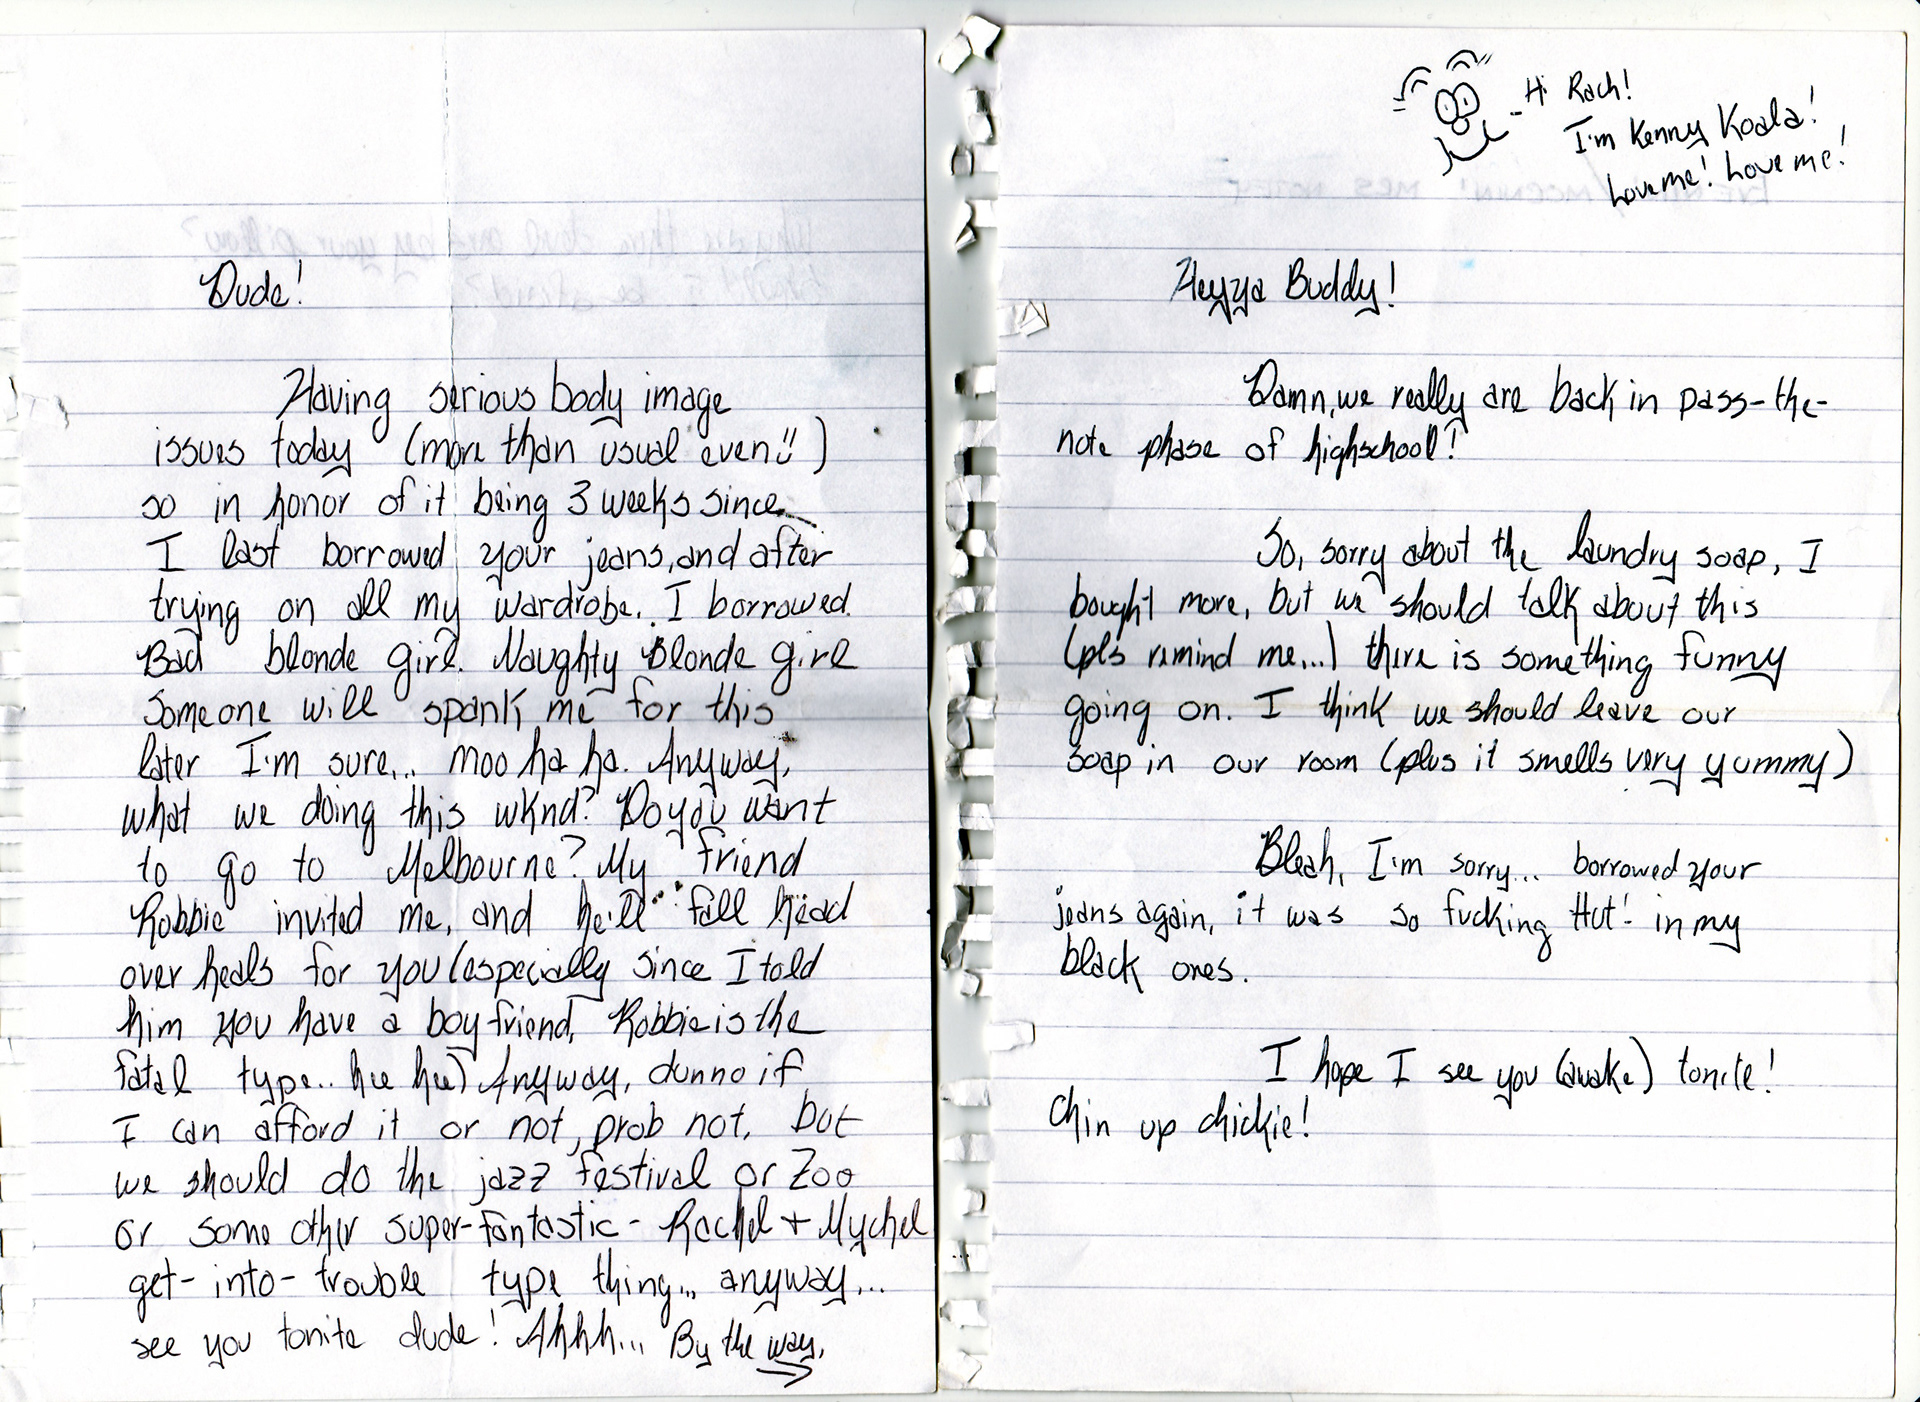 Dude!
Having serious body image
issues today (more than usual even!!)
so in honor of it being 3 weeks since
I last borrowed your jeans, and after
trying on all my wardrobe.. I borrowed.
Bad blonde girl. Naughty Blonde girl
someone will spank me for this
later I'm sure... moo ha ha. Anyway,
what we doing this wknd? Do you want
to go to Melbourne? My friend
Robbie invited me, and he'll fall head
over heals for you (especially since I told
him you have a boyfriend, Robbie is the
fatal type.. hee hee) Anyway, dunno if
I can afford it or not, prob not, but
we should do the jazz festival or Zoo
or some other super-fantastic- Rachel + Mychel
get-into-trouble type thing... anyway...
see you tonite dude! Ahhh... By the way,
Hi Rach!
I'm Kenny Koala!
Love me! Love me!
Heyya Buddy!
Damn, we really are back in pass-the-
note phase of highschool!
So, sorry about the laundry soap, I
bought more, but we should talk about this
(pls remind me...) there is something funny
going on. I think we should leave our
soap in our room (plus it smells very yummy)
Bleah, I'm sorry... borrowed your
jeans again, it was so fucking Hot! in my
black ones.
I hope I see you (awake) tonite!
Chin up chickie!